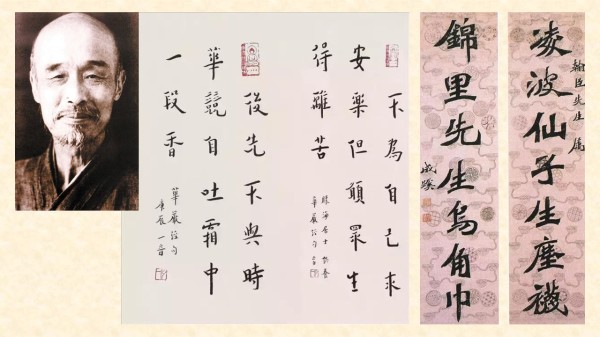 翰臣先生屬
凌波仙子生塵襪
錦里先生烏角巾
成蹊
不為自己求
安樂但願眾生
得離苦
居士
華嚴經句
後先不與時
華競自吐霜中
一段香
華嚴經句
一音